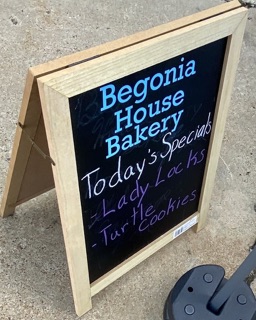 Begonia
House
Bakery
Today's Specials
- Lady Locks
- Turtle
Cookies